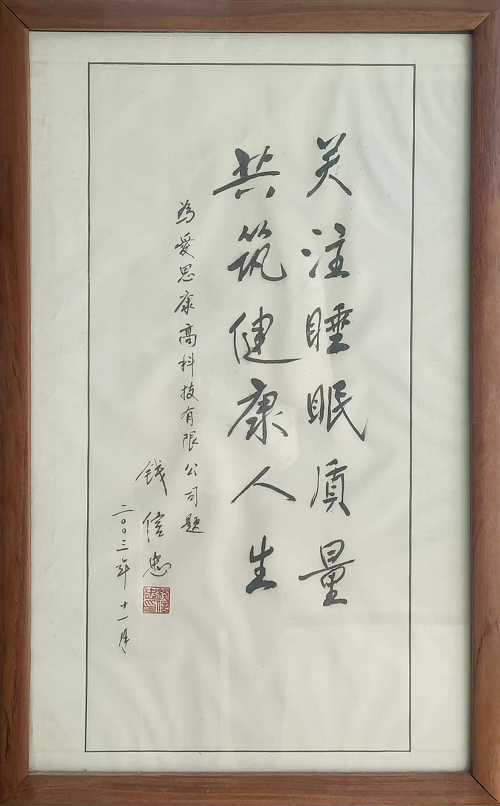 关注睡眠质量
共筑健康人生
為爱思康高科技有限公司题
钱信忠
二〇〇三年十一月